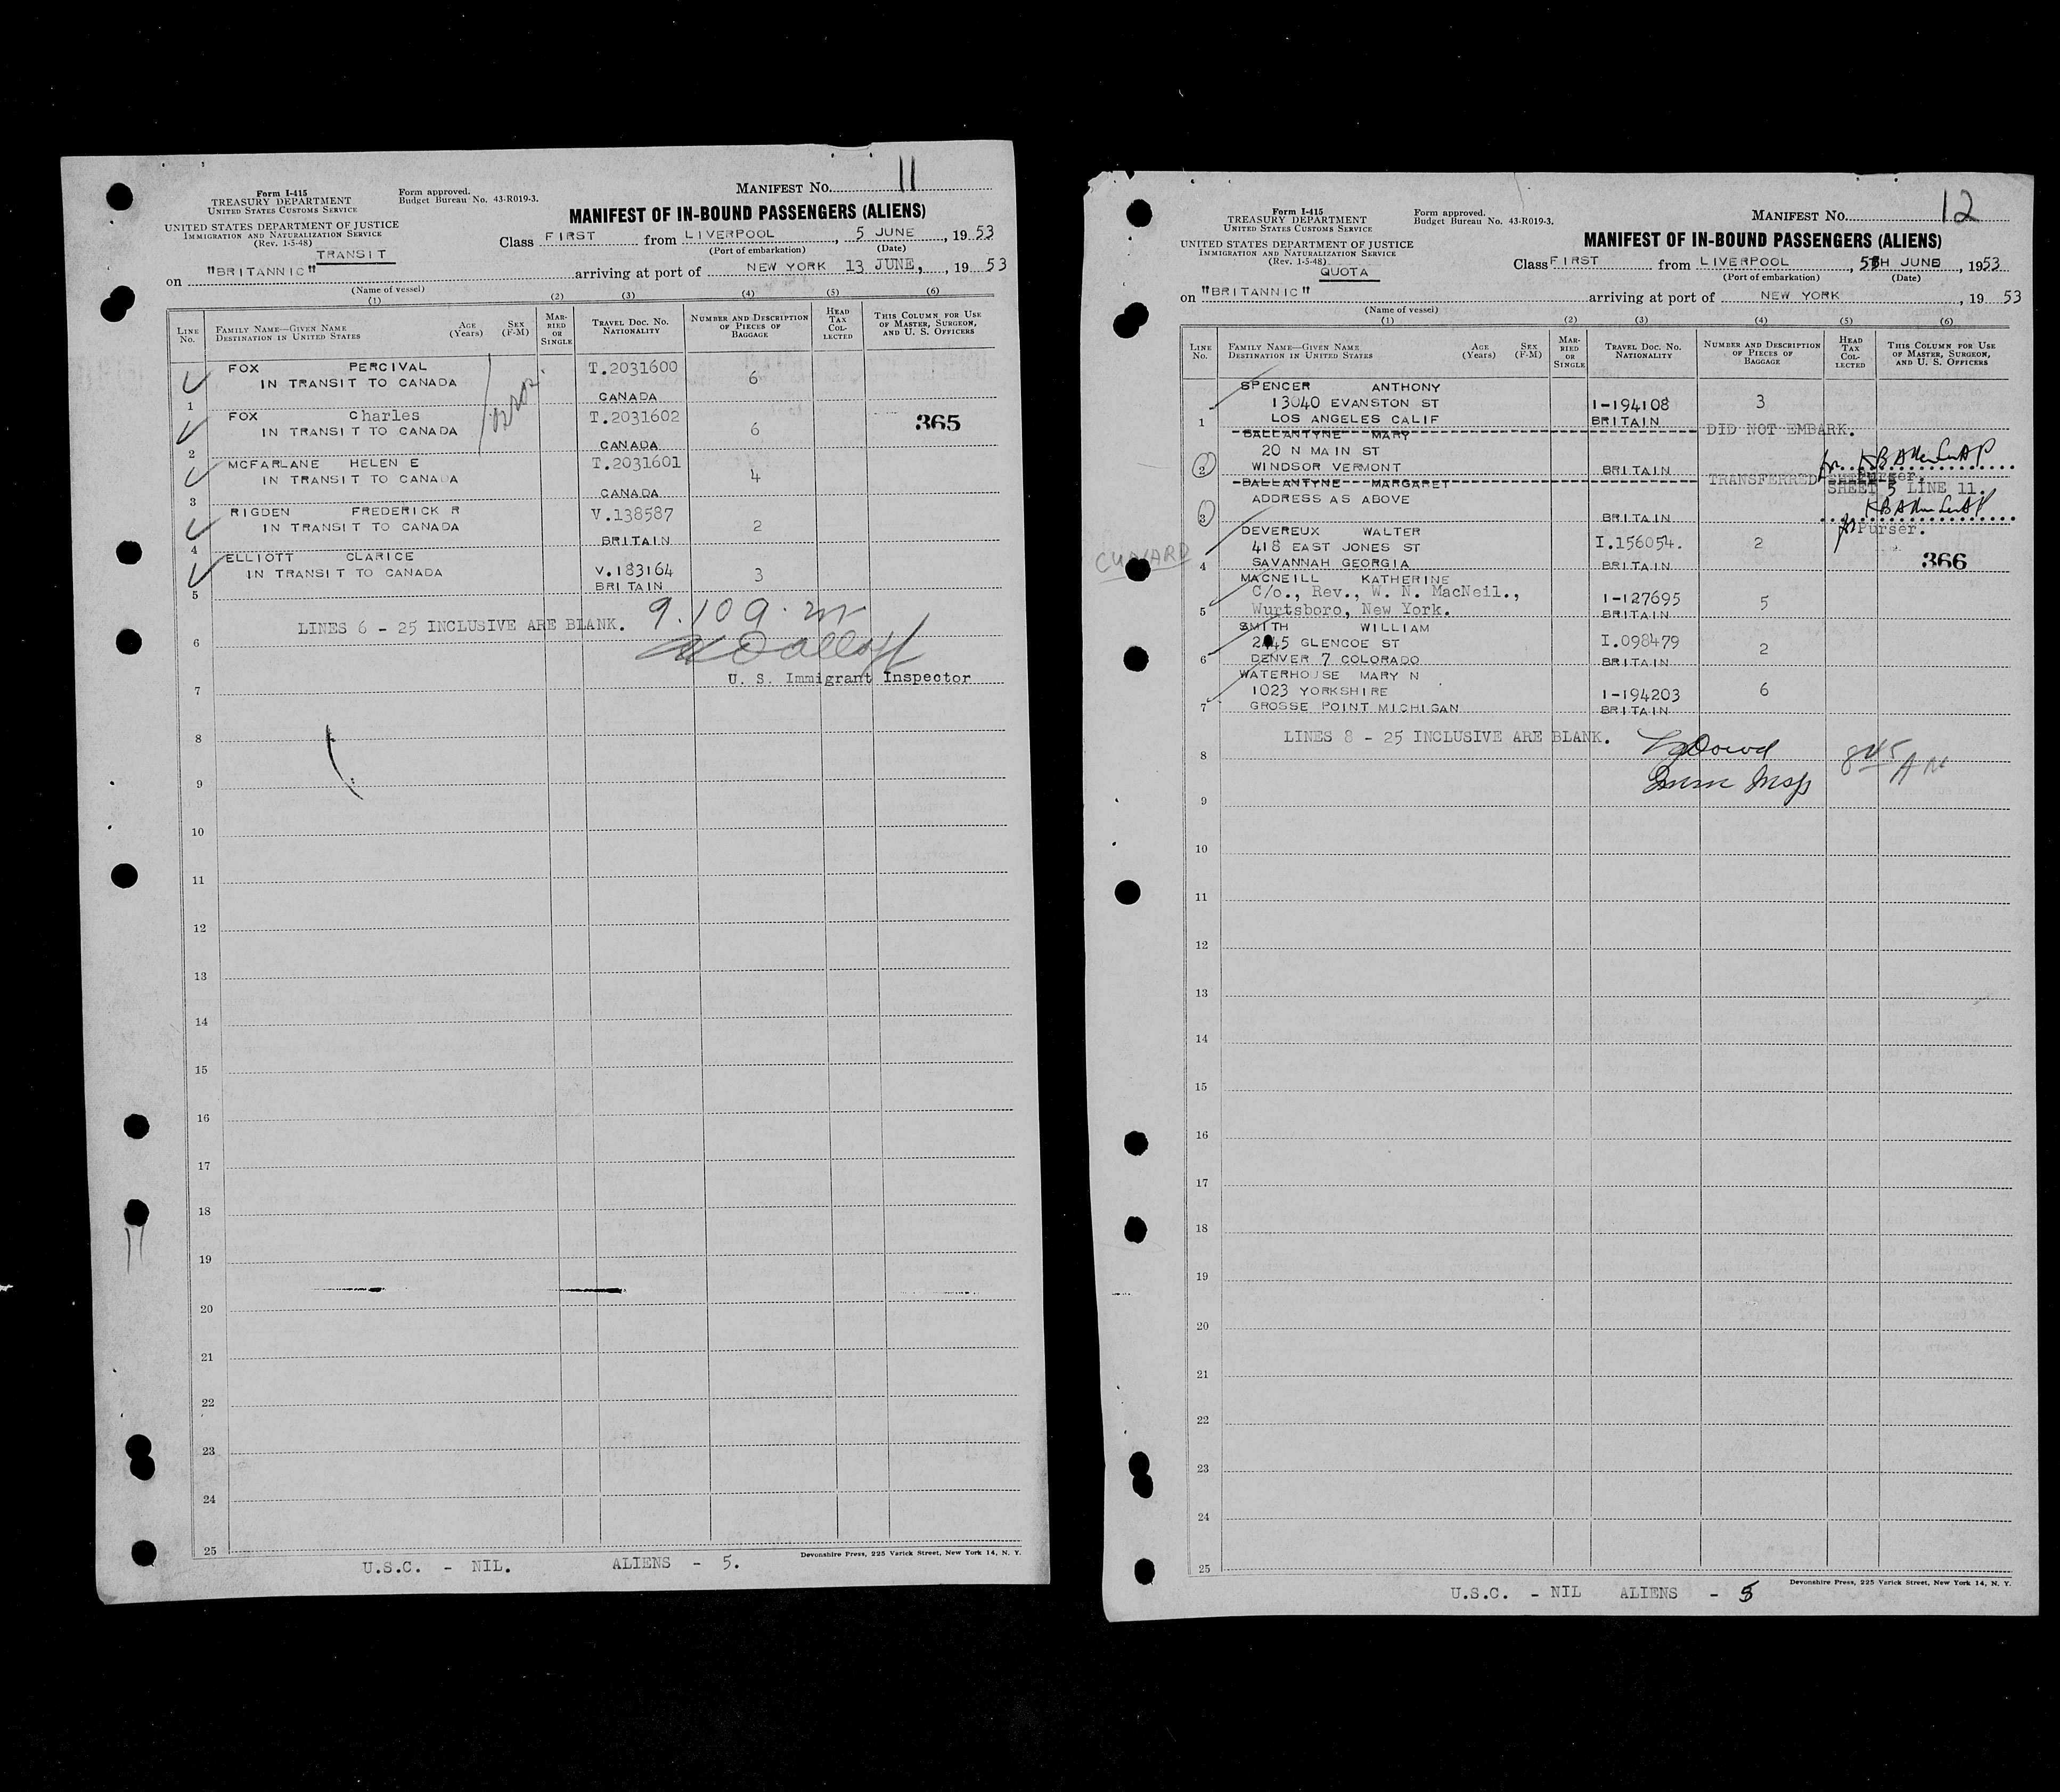 11
Form I-415
TREASURY DEPARTMENT
UNITED STATES CUSTOMS SERVICE
Form approved.
Budget Bureau No. 43-R019-3.
MANIFEST No.
UNITED STATES DEPARTMENT OF JUSTICE
IMMIGRATION AND NATURALIZATION SERVICE
(Rev. 1-5-48)
TRANSIT
MANIFEST OF IN-BOUND PASSENGERS (ALIENS)
Class FIRST from LIVERPOOL, 5 JUNE, 1953
(Port of embarkation) (Date)
on "BRITANNIC" arriving at port of NEW YORK 13 JUNE, , 1953
(Name of vessel)
(1) (2) (3) (4) (5) (6)
LINE No. FAMILY NAME—GIVEN NAME DESTINATION IN UNITED STATES AGE (Years) SEX (F-M) MARRIED OR SINGLE TRAVEL DOC. NO. NATIONALITY NUMBER AND DESCRIPTION OF PIECES OF BAGGAGE HEAD TAX COLLECTED THIS COLUMN FOR USE OF MASTER, SURGEON, AND U. S. OFFICERS
FOX PERCIVAL T.2031600
IN TRANSIT TO CANADA 6
1 CANADA
FOX Charles T.2031602 365
IN TRANSIT TO CANADA 6
2 CANADA
MCFARLANE HELEN E T.2031601
IN TRANSIT TO CANADA 4
3 CANADA
RIGDEN FREDERICK R V.138587
IN TRANSIT TO CANADA 2
4 BRITAIN
ELLIOTT CLARICE
IN TRANSIT TO CANADA V.183164 3
5 BRITAIN
9.10 a.m
LINES 6 - 25 INCLUSIVE ARE BLANK.
6
U. S. Immigrant Inspector
7
8
9
10
11
12
13
14
15
16
17
18
19
20
21
22
23
24
25
Devonshire Press, 225 Varick Street, New York 14, N. Y.
U.S.C. - NIL. ALIENS - 5.
12
Form I-415
TREASURY DEPARTMENT
UNITED STATES CUSTOMS SERVICE
Form approved.
Budget Bureau No. 43-R019-3.
MANIFEST No.
UNITED STATES DEPARTMENT OF JUSTICE
IMMIGRATION AND NATURALIZATION SERVICE
(Rev. 1-5-48)
QUOTA
MANIFEST OF IN-BOUND PASSENGERS (ALIENS)
Class FIRST from LIVERPOOL, 5TH JUNE, 1953
(Port of embarkation) (Date)
on "BRITANNIC" arriving at port of NEW YORK, 19 53
(Name of vessel)
(1) (2) (3) (4) (5) (6)
LINE No. FAMILY NAME—GIVEN NAME DESTINATION IN UNITED STATES AGE (Years) SEX (F-M) MARRIED OR SINGLE TRAVEL DOC. NO. NATIONALITY NUMBER AND DESCRIPTION OF PIECES OF BAGGAGE HEAD TAX COLLECTED THIS COLUMN FOR USE OF MASTER, SURGEON, AND U. S. OFFICERS
SPENCER ANTHONY
13040 EVANSTON ST 1-194108 3
1 LOS ANGELES CALIF BRITAIN
BALLANTYNE MARY DID NOT EMBARK.
20 N MAIN ST
2 WINDSOR VERMONT BRITAIN for Purser.
BALLANTYNE MARGARET TRANSFERRED SHEET 5 LINE 11.
ADDRESS AS ABOVE
3 BRITAIN for Purser.
DEVEREUX WALTER
CUNARD 418 EAST JONES ST I.156054. 2
4 SAVANNAH GEORGIA BRITAIN 366
MACNEILL KATHERINE
C/o., Rev., W. N. MacNeil., 1-127695 5
5 Wurtsboro, New York. BRITAIN
SMITH WILLIAM
2445 GLENCOE ST I.098479 2
6 DENVER 7 COLORADO BRITAIN
WATERHOUSE MARY N
1023 YORKSHIRE 1-194203 6
7 GROSSE POINT MICHIGAN BRITAIN
LINES 8 - 25 INCLUSIVE ARE BLANK.
8 845 AM
Imm Insp
9
10
11
12
13
14
15
16
17
18
19
20
21
22
23
24
25
Devonshire Press, 225 Varick Street, New York 14, N. Y.
U.S.C. - NIL ALIENS - 5